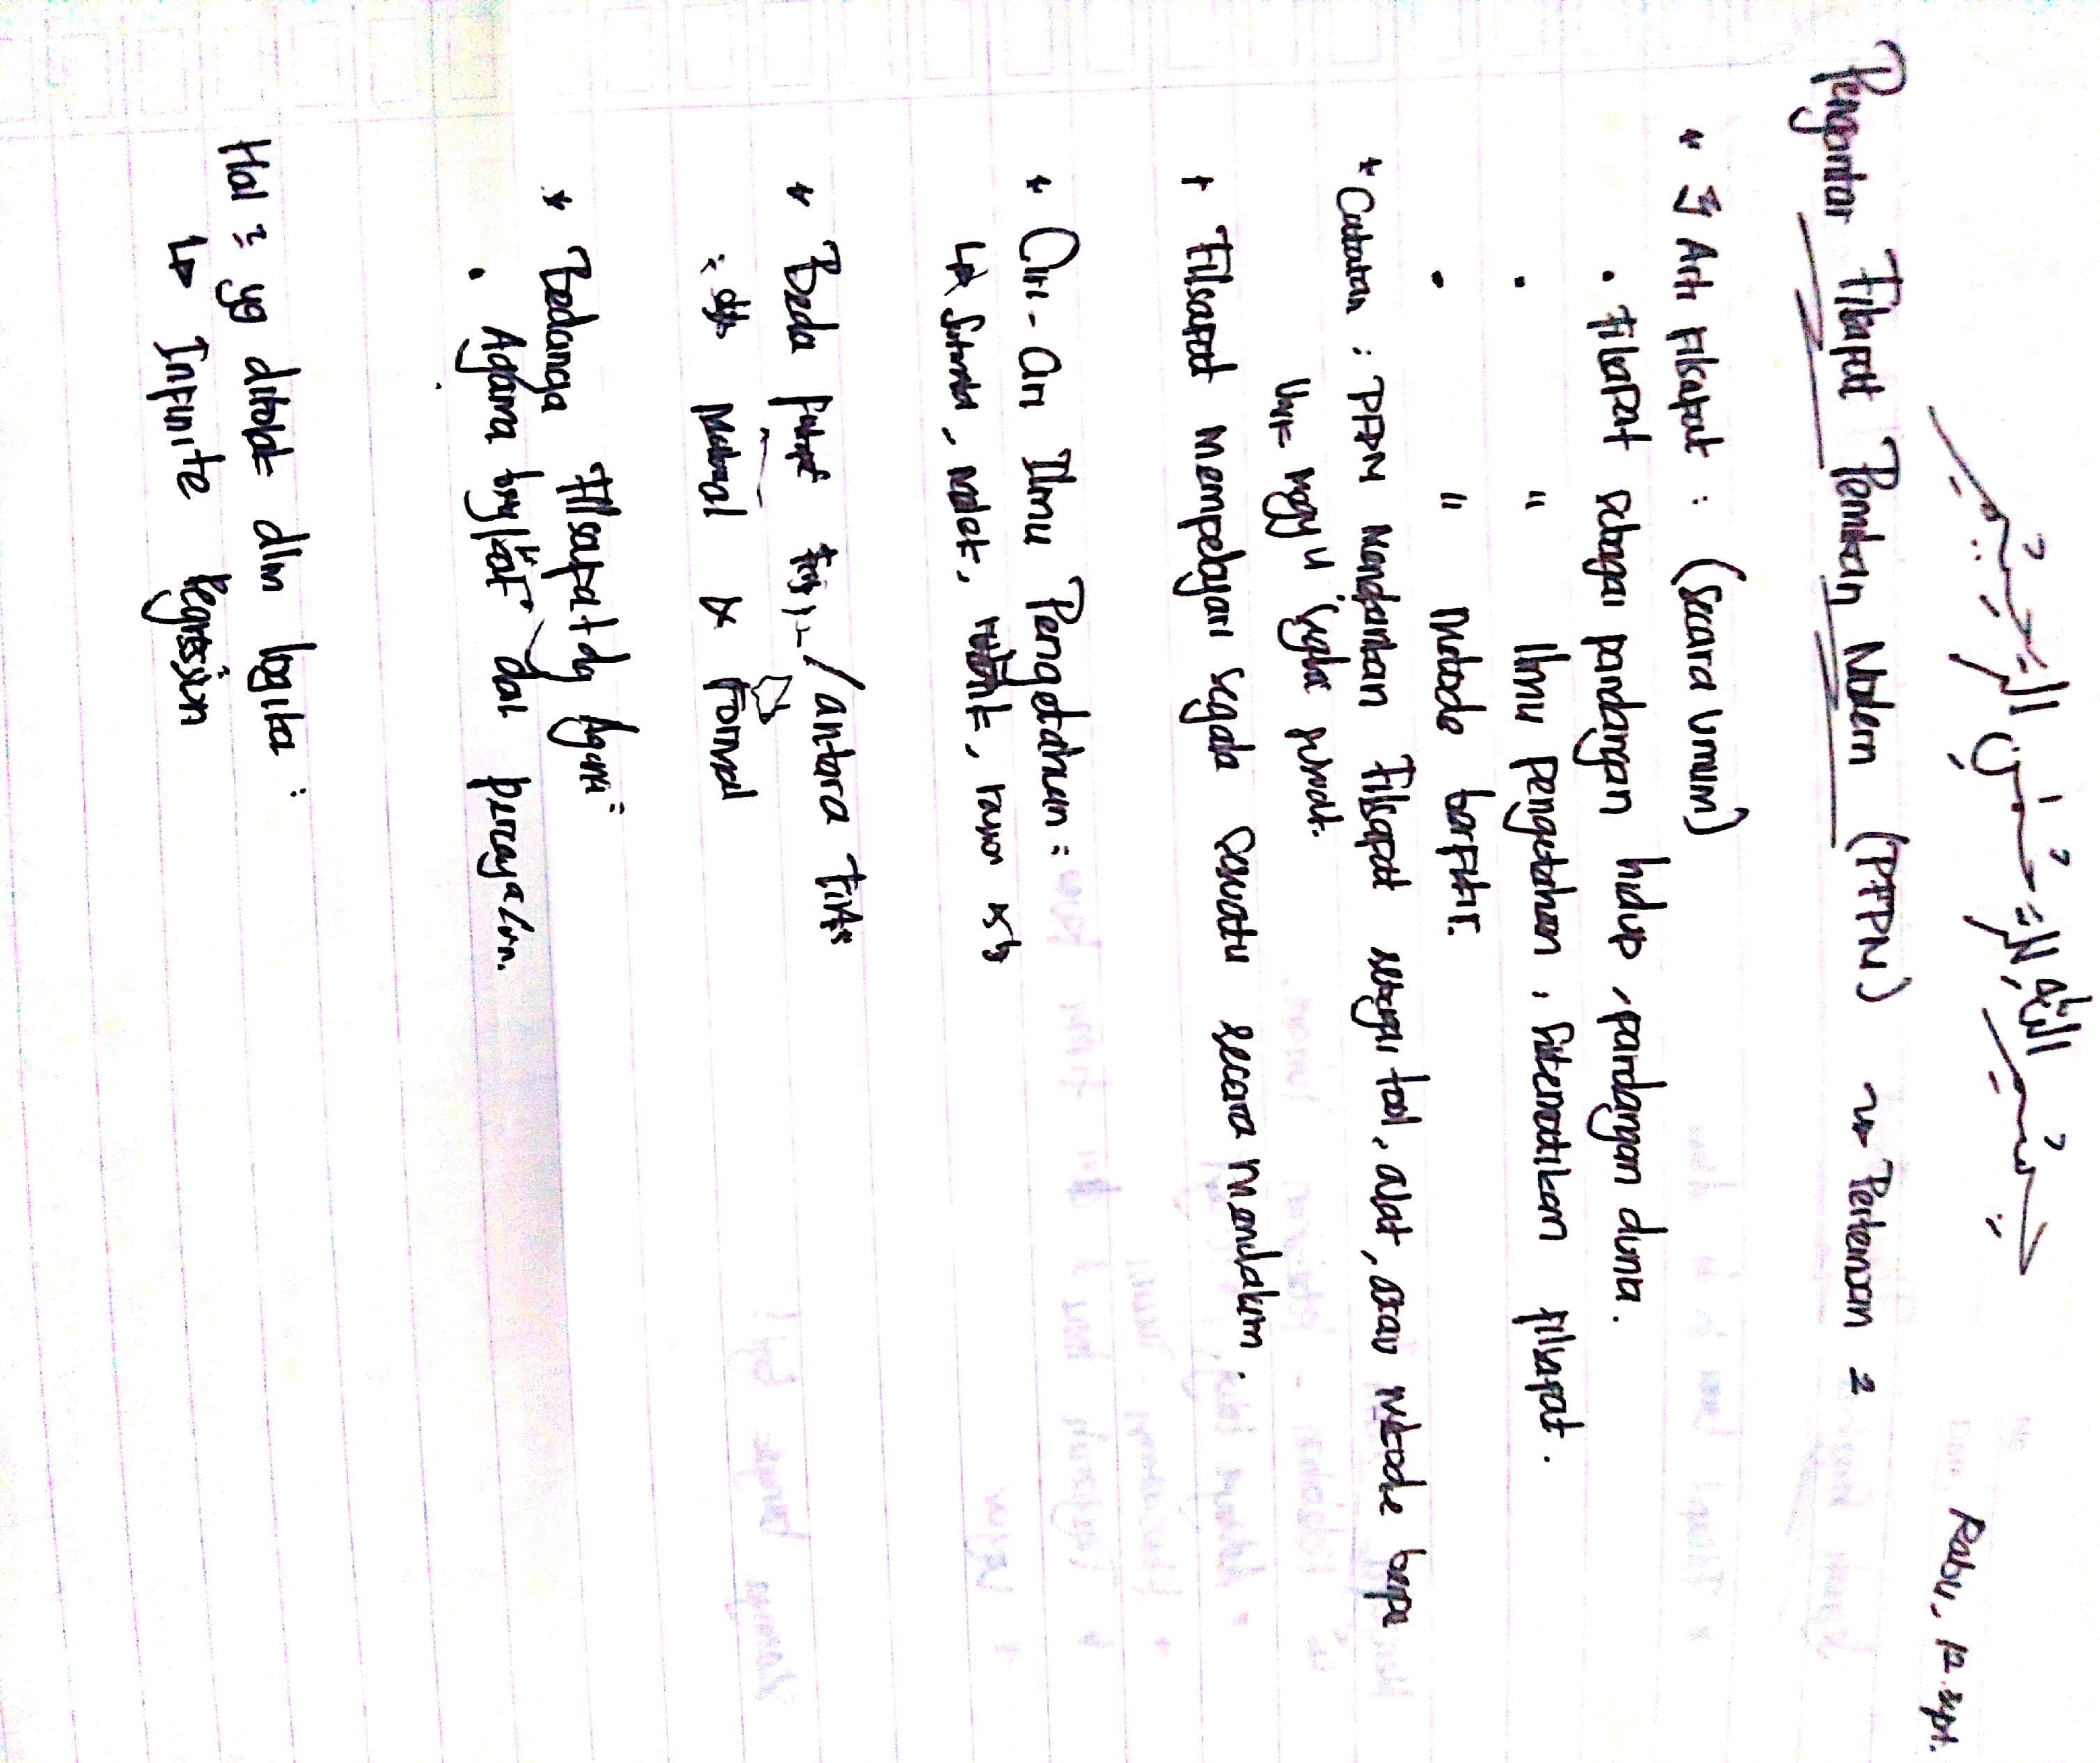 بسم الله الرحمن الرحيم
Rabu, 12 Sept.
Pengantar Filsafat Pemikiran Modern (PFPM) ~> Pertemuan 2
* 3 Arti Filsafat : (secara umum)
• Filsafat sebagai pandangan hidup, pandangan dunia.
• " Ilmu pengetahuan, sistematikan filsafat.
• " Metode berfikir.
* Catatan : PFPM mengartikan Filsafat sebagai tool, alat, atau metode berpi
segala sesuatu.
+ Filsafat mempelajari segala sesuatu secara mendalam.
* Ciri-ciri Ilmu Pengetahuan :
↳ Sistematis, metode,
* Beda / antara
Material & Formal
* Bedanya Filsafat dg Agama =
• Agama dai percaya
Hal² yg ditolak dlm logika :
↳ Infinite Regression